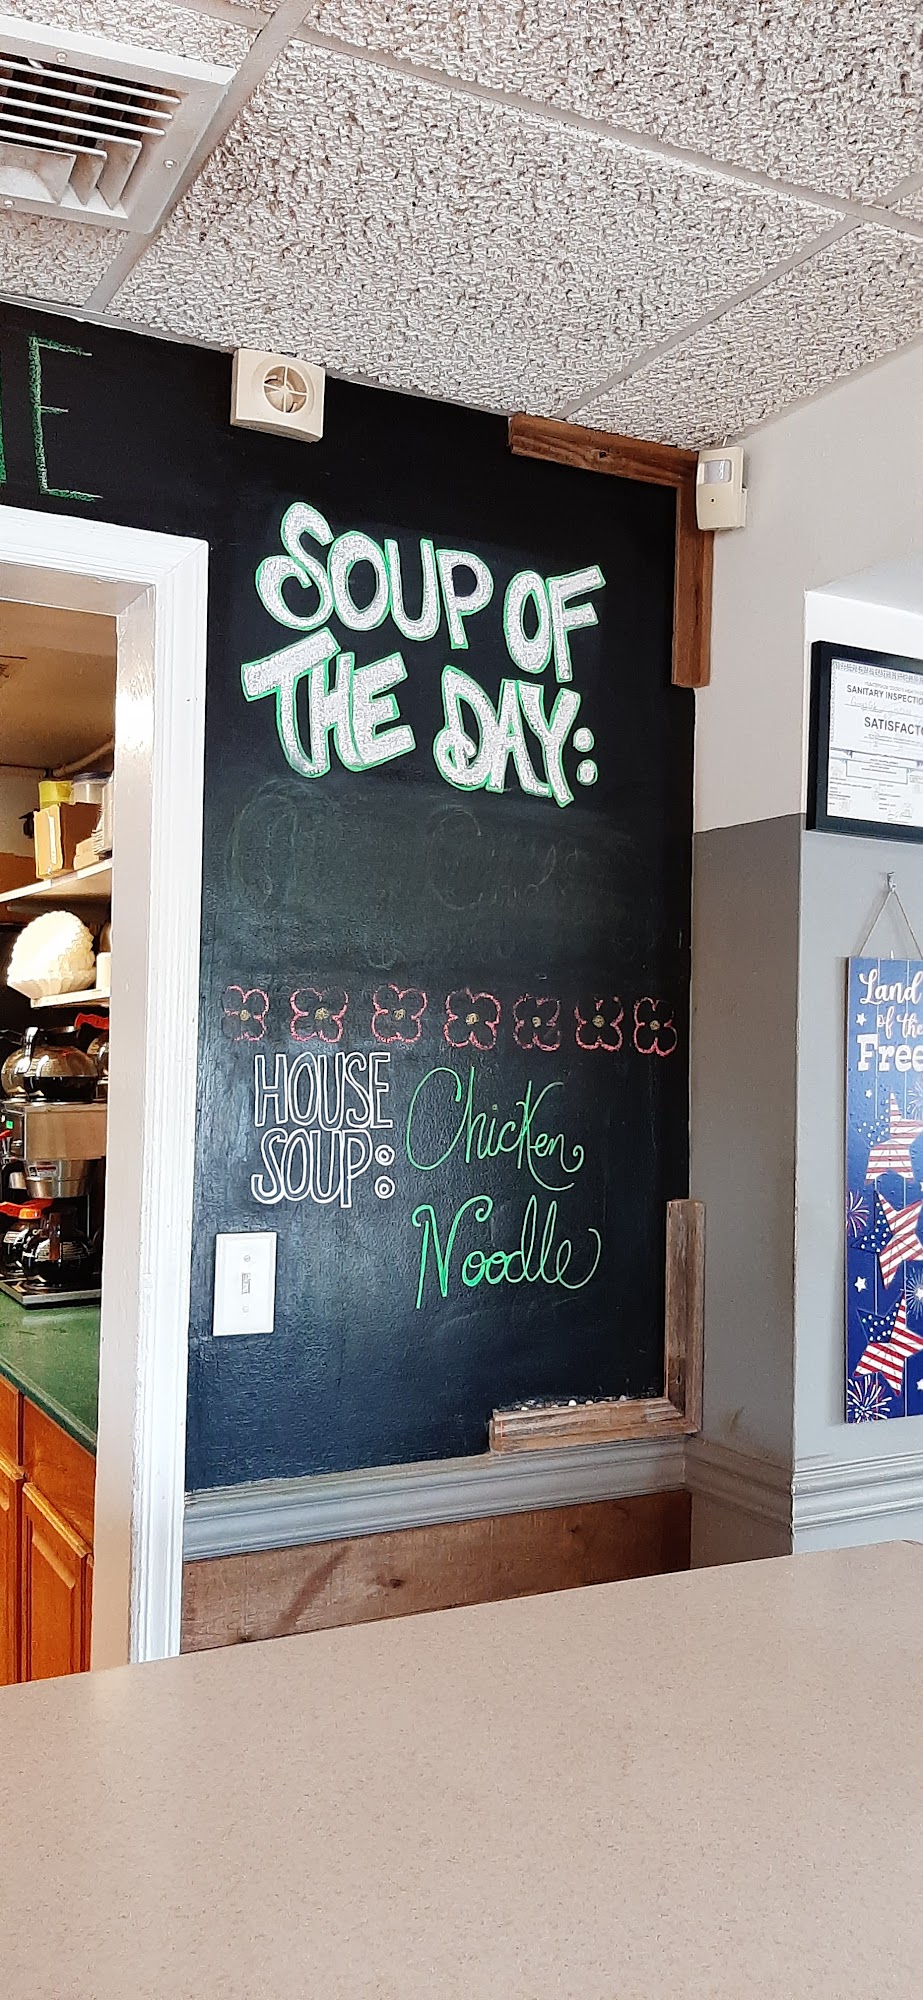 E
SOUP OF
THE DAY:
HOUSE
SOUP:
Chicken
Noodle
SANITARY INSPECTIO
SATISFACTO
Land
of the
Free